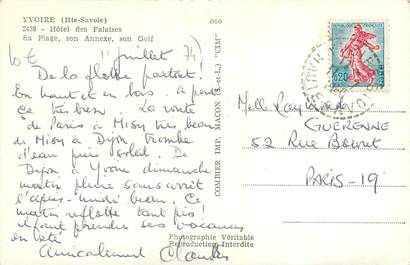 YVOIRE (Hte-Savoie)
2438 - Hôtel des Falaises
Sa Plage, son Annexe, son Golf
10€ 1 juillet
De la flotte partout!
En haut ça en bas. A part
ça très bien. La route
de Paris à très beau
de à Dijon trombe
d'eau puis soleil. De
Dijon à Yvoire dimanche
matin pluie sans arrêt
l'après-midi beau. Ce
matin reflotte tant pis!
il faut prendre ses vacances
en été
Amicalement
COMBIER IMP. MACON (S.-et-L.) "CIM"
Photographie Véritable
Reproduction Interdite
0,20
Melle Raymonde
GUÉRENNE
52 Rue Bouret
PARIS-19